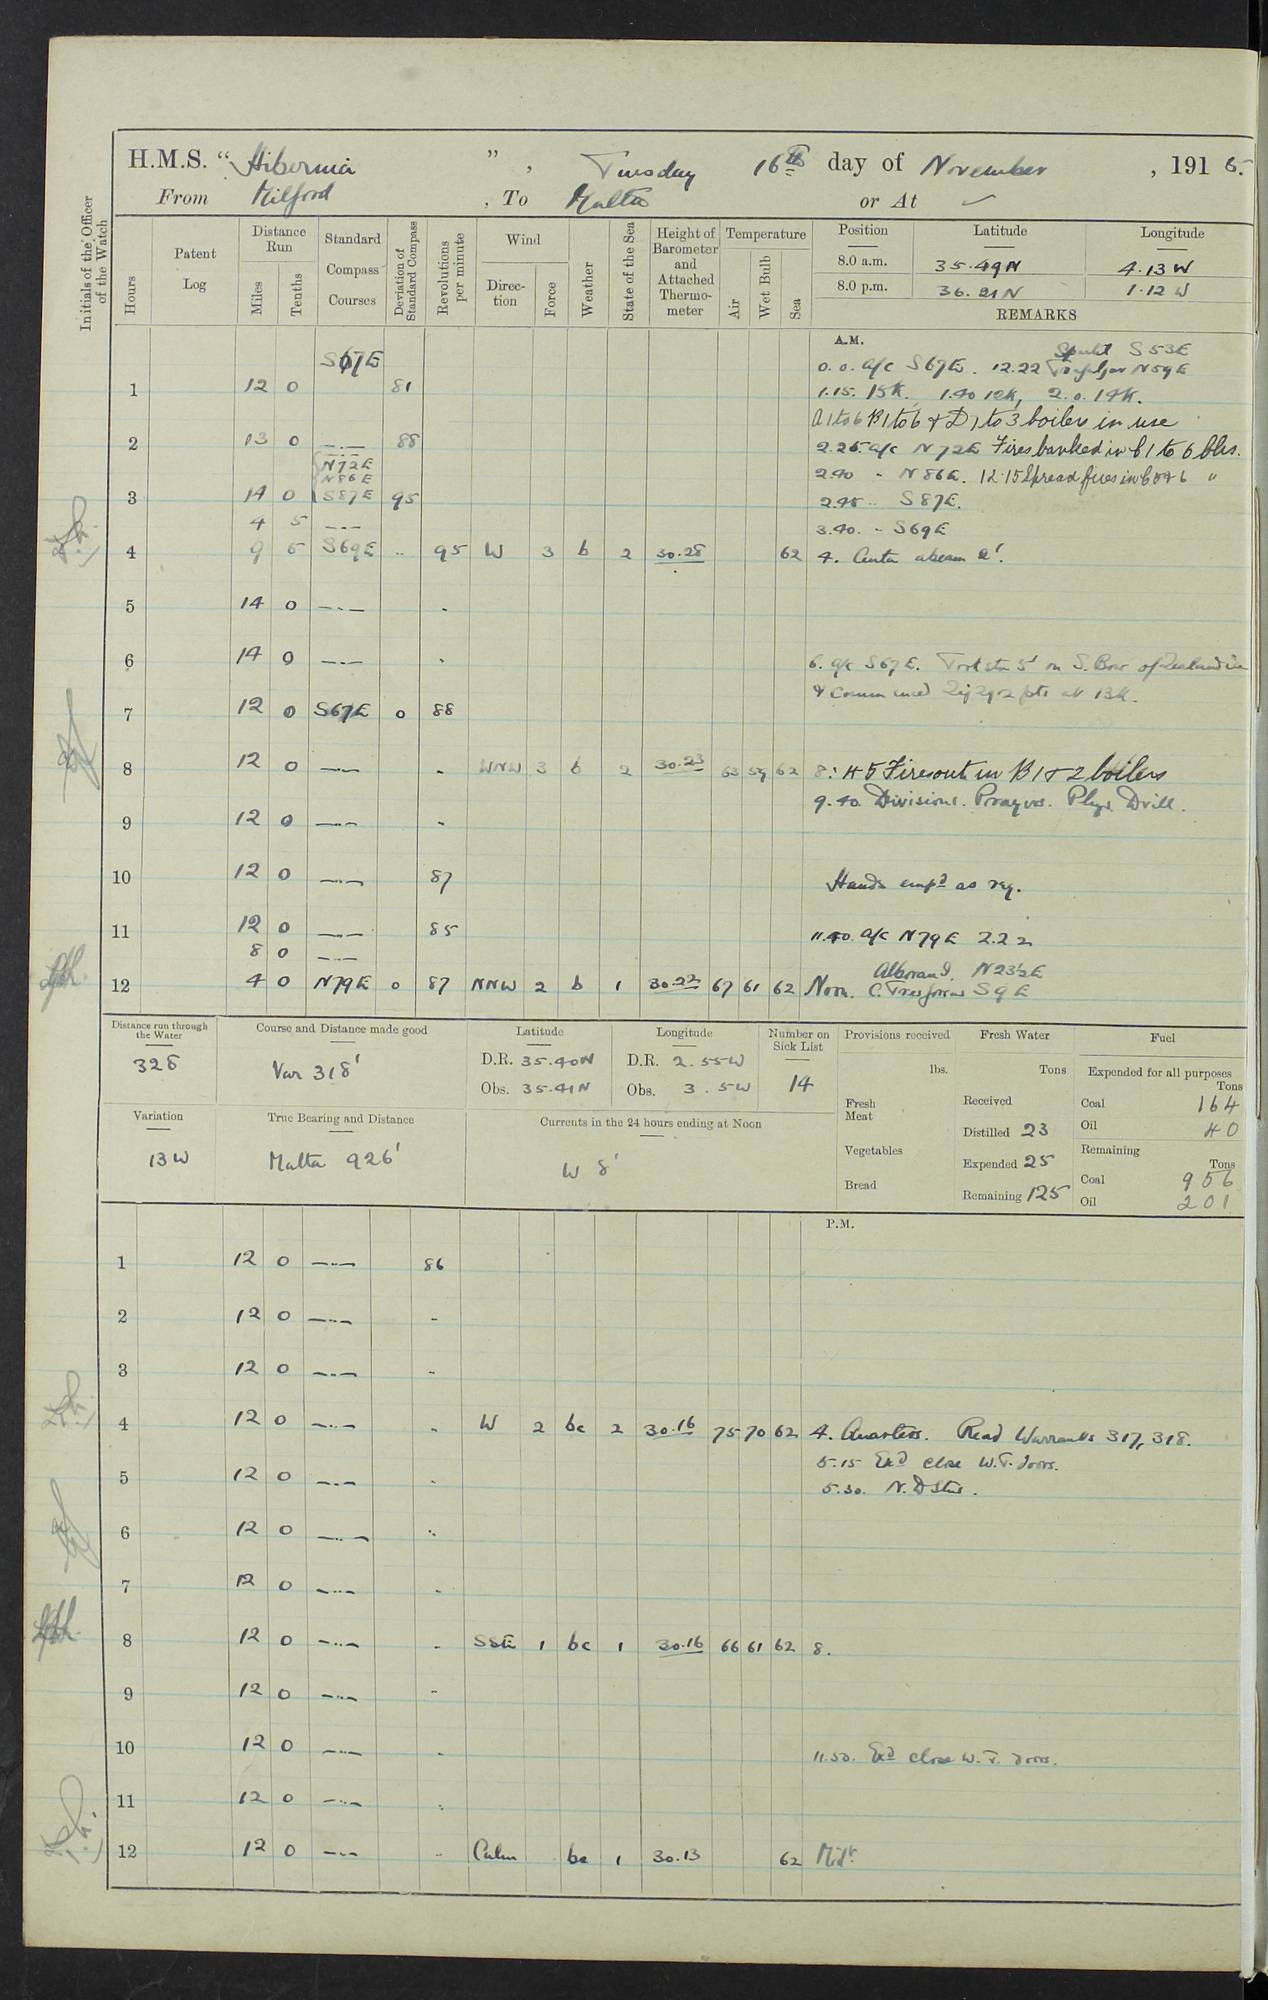 H.M.S. “Hibernia ” , Tuesday 16th day of November , 1915.
From Milford , To Malta or At ✓
Initials of the Officer of the Watch
Hours
Patent Log
Distance Run
Miles
Tenths
Standard Compass Courses
Deviation of Standard Compass
Revolutions per minute
Wind
Direction
Force
Weather
State of the Sea
Height of Barometer and Attached Thermometer
Temperature
Air
Wet Bulb
Sea
Position Latitude Longitude
8.0 a.m. 35.49N 4.13W
8.0 p.m. 36.21N 1.12W
REMARKS
A.M.
S67E
Spartel S53E
0.0. a/c S67E. 12.22 Trafalgar N59E
1 12 0 81
1.15. 15K. 1.40 12K, 2.0. 14K.
A1to6 B1to6 & D1to3 boilers in use
2 13 0 —..— 88
2.25. a/c N72E Fires banked in C1 to 6 blrs.
N72E
N86E
2.40 - N86E. 12.15 Spread fires in C5&6 "
3 14 0 S87E 95
2.45 .. S87E.
4 5 —..—
3.40. - S69E
4 9 5 S69E .. 95 W 3 b 2 30.28 62 4. Ceuta abeam 2'.
5 14 0 —..— -
6 14 0 —..— -
6. a/c S67E. Took stn 5' on S. Bow of Zealandia
& commenced Zigzag 2 pts at 13K.
7 12 0 S67E 0 88
8 12 0 —..— - WNW 3 b 2 30.23 63 59 62 8.45 Fires out in B1&2 boilers
9.40. Divisions. Prayers. Phys Drill.
9 12 0 —..— -
10 12 0 —..— 87 Hands empd as req.
11 12 0 —..— 85 11.40. a/c N79E 222
8 0 —..—
Alboran I. N23½E
12 4 0 N79E 0 87 NNW 2 b 1 30.22 67 61 62 Noon. C. Tresforcas S9E
Distance run through the Water
328
Course and Distance made good
Var 318'
Latitude
D.R. 35.40N
Obs. 35.41N
Longitude
D.R. 2.55W
Obs. 3.5W
Number on Sick List
14
Variation
13W
True Bearing and Distance
Malta 926'
Currents in the 24 hours ending at Noon
W 8'
Provisions received
lbs.
Fresh Meat
Vegetables
Bread
Fresh Water
Tons
Received
Distilled 23
Expended 25
Remaining 125
Fuel
Expended for all purposes
Tons
Coal 164
Oil 40
Remaining
Tons
Coal 956
Oil 201
P.M.
1 12 0 —..— 86
2 12 0 —..— -
3 12 0 —..— -
4 12 0 —..— - W 2 bc 2 30.16 75 70 62 4. Quarters. Read Warrants 317, 318.
5.15 Exd close W.T. doors.
5 12 0 —..— -
5.30. N.D Stns.
6 12 0 —..— ..
7 12 0 —..— -
8 12 0 —..— - SSE 1 bc 1 30.16 66 61 62 8.
9 12 0 —..— -
10 12 0 —..— -
11.50. Exd close W.T. doors.
11 12 0 —..— ..
12 12 0 —..— - Calm bc 1 30.13 62 Midt.